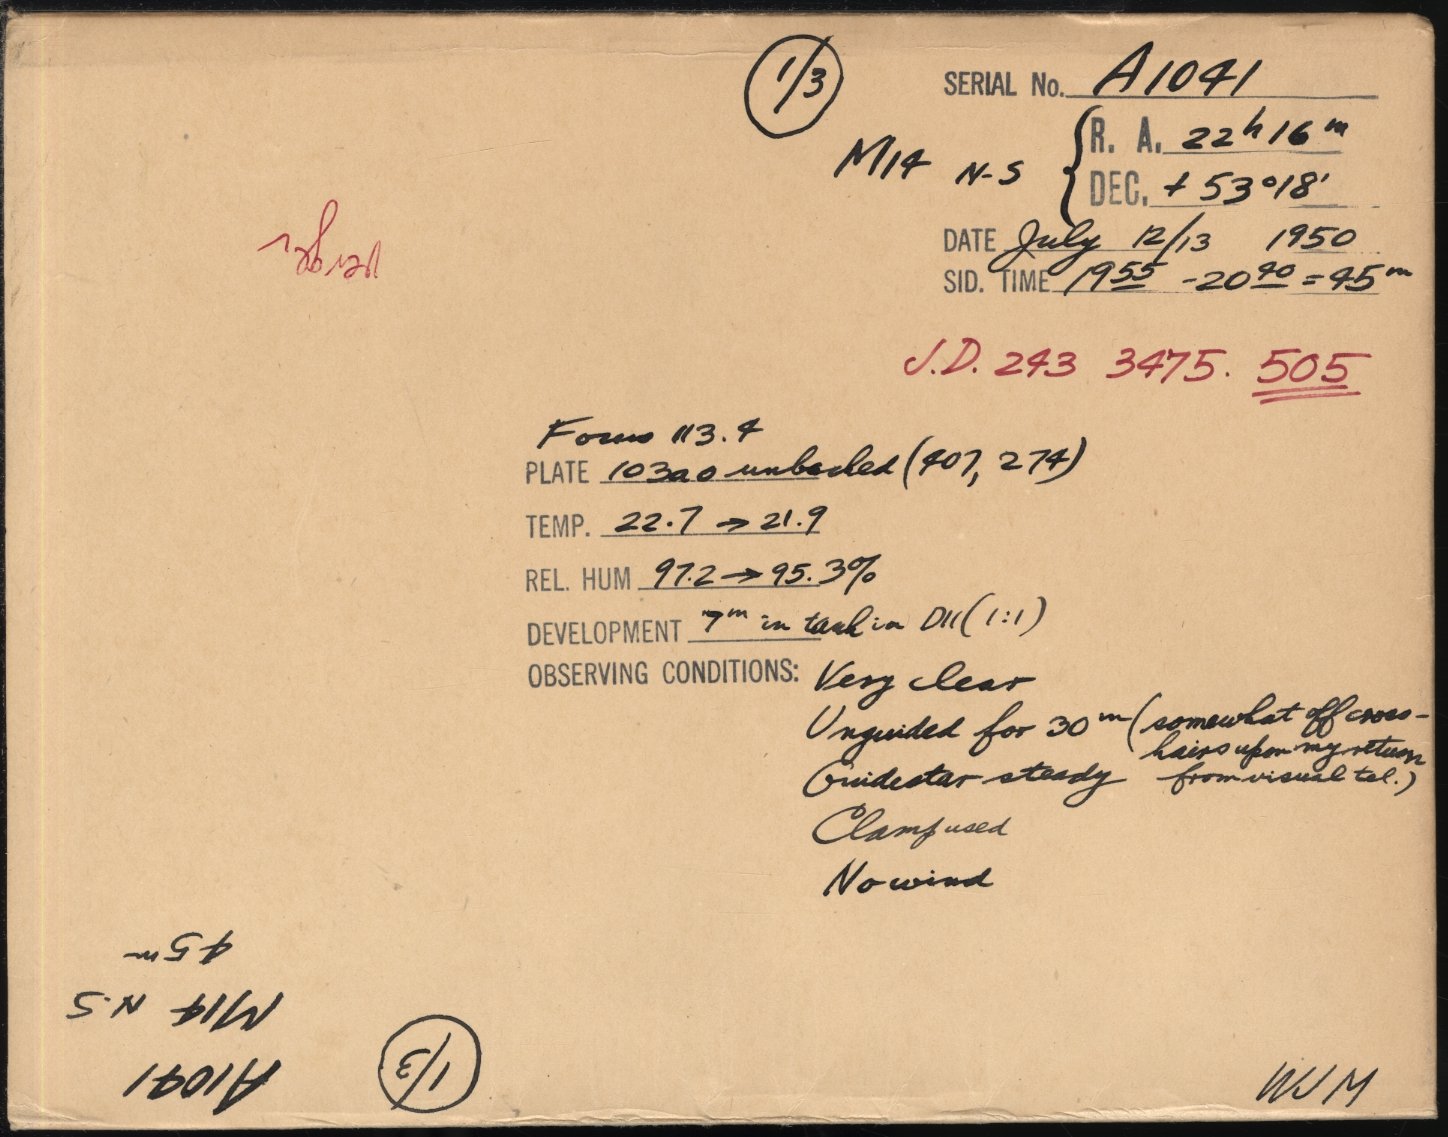 1/3
SERIAL No. A1041
M14 N-S
R. A. 22h 16m
DEC. + 53°18'
DATE July 12/13 1950
SID. TIME 1955 - 2040 = 45m
J.D. 243 3475. 505
Focus 113.4
PLATE 103a o unbacked (407, 274)
TEMP. 22.7 → 21.9
REL. HUM 97.2 → 95.3%
DEVELOPMENT 7m in tank in D11 (1:1)
OBSERVING CONDITIONS: Very clear
Unguided for 30m (somewhat off cross-
hairs upon my return
from visual tel.)
Guidestar steady
Clamp used
No wind
A1041
M14 N-S
45m
1/3
WJM